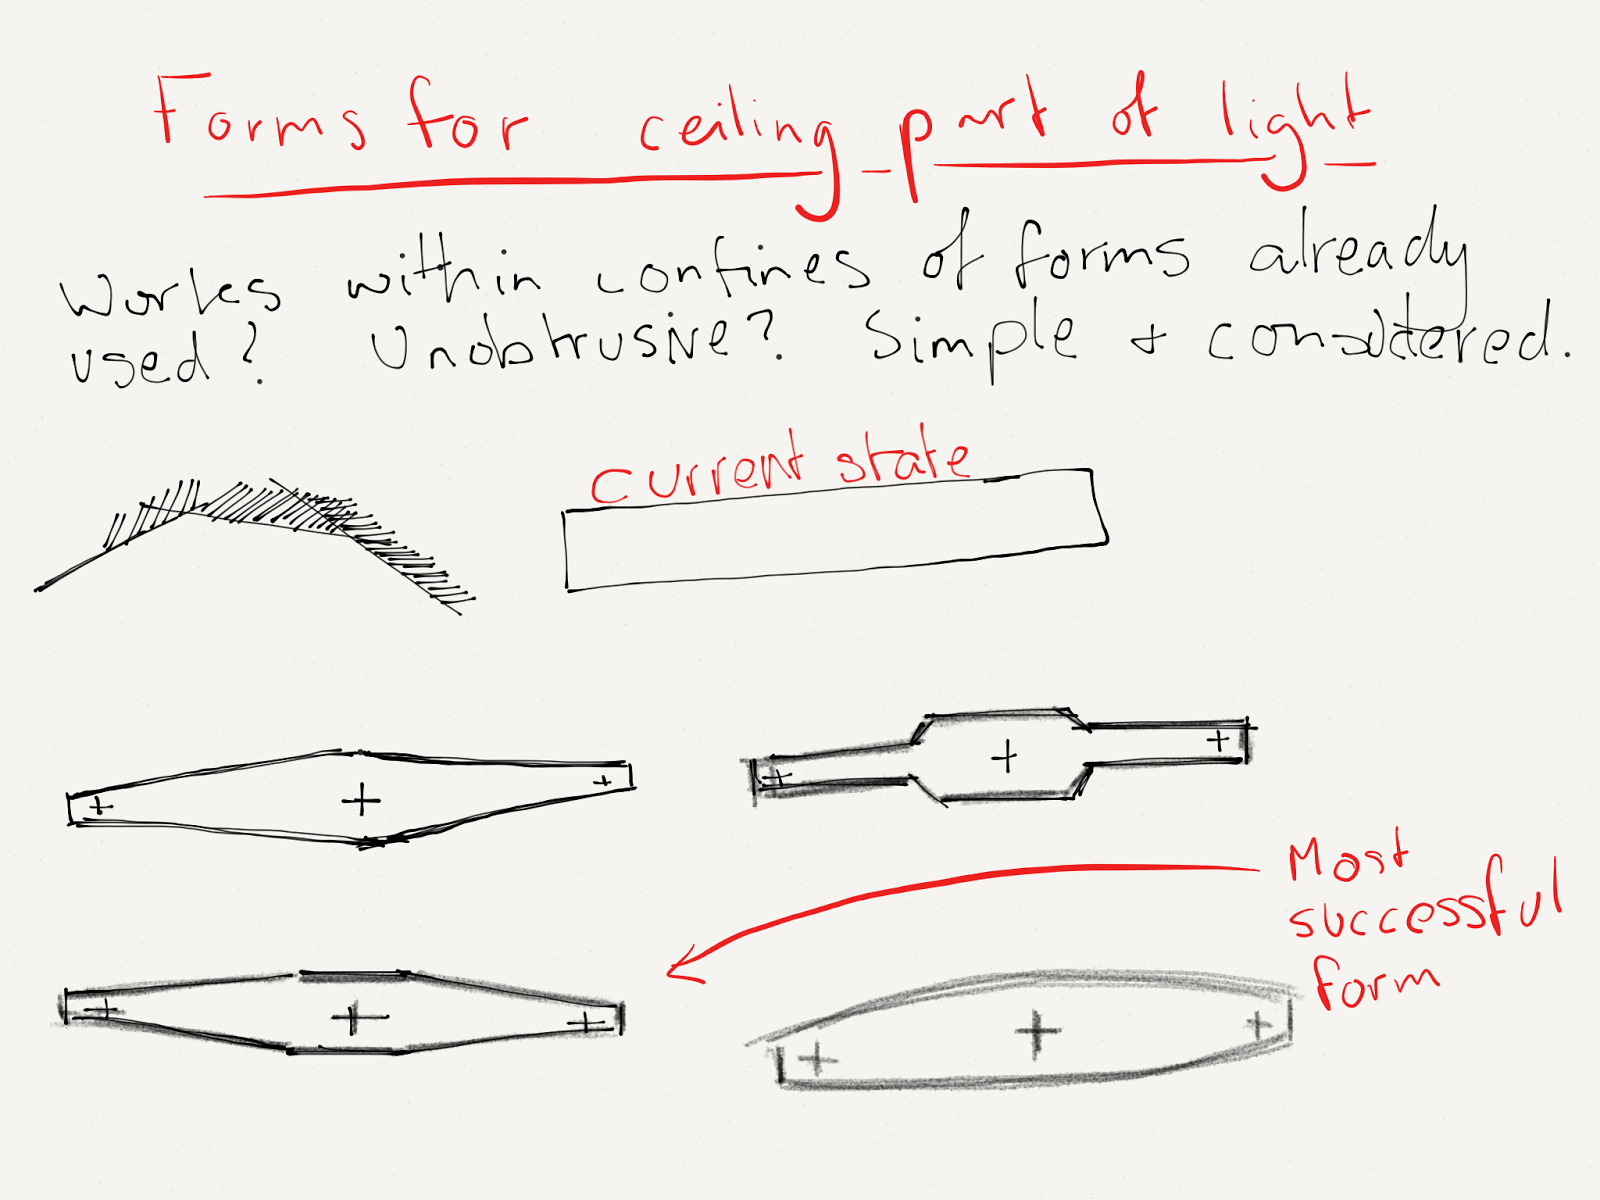 Forms for ceiling part of light
Works within confines of forms already
used? Unobtrusive? Simple + considered.
current state
Most
successful
form